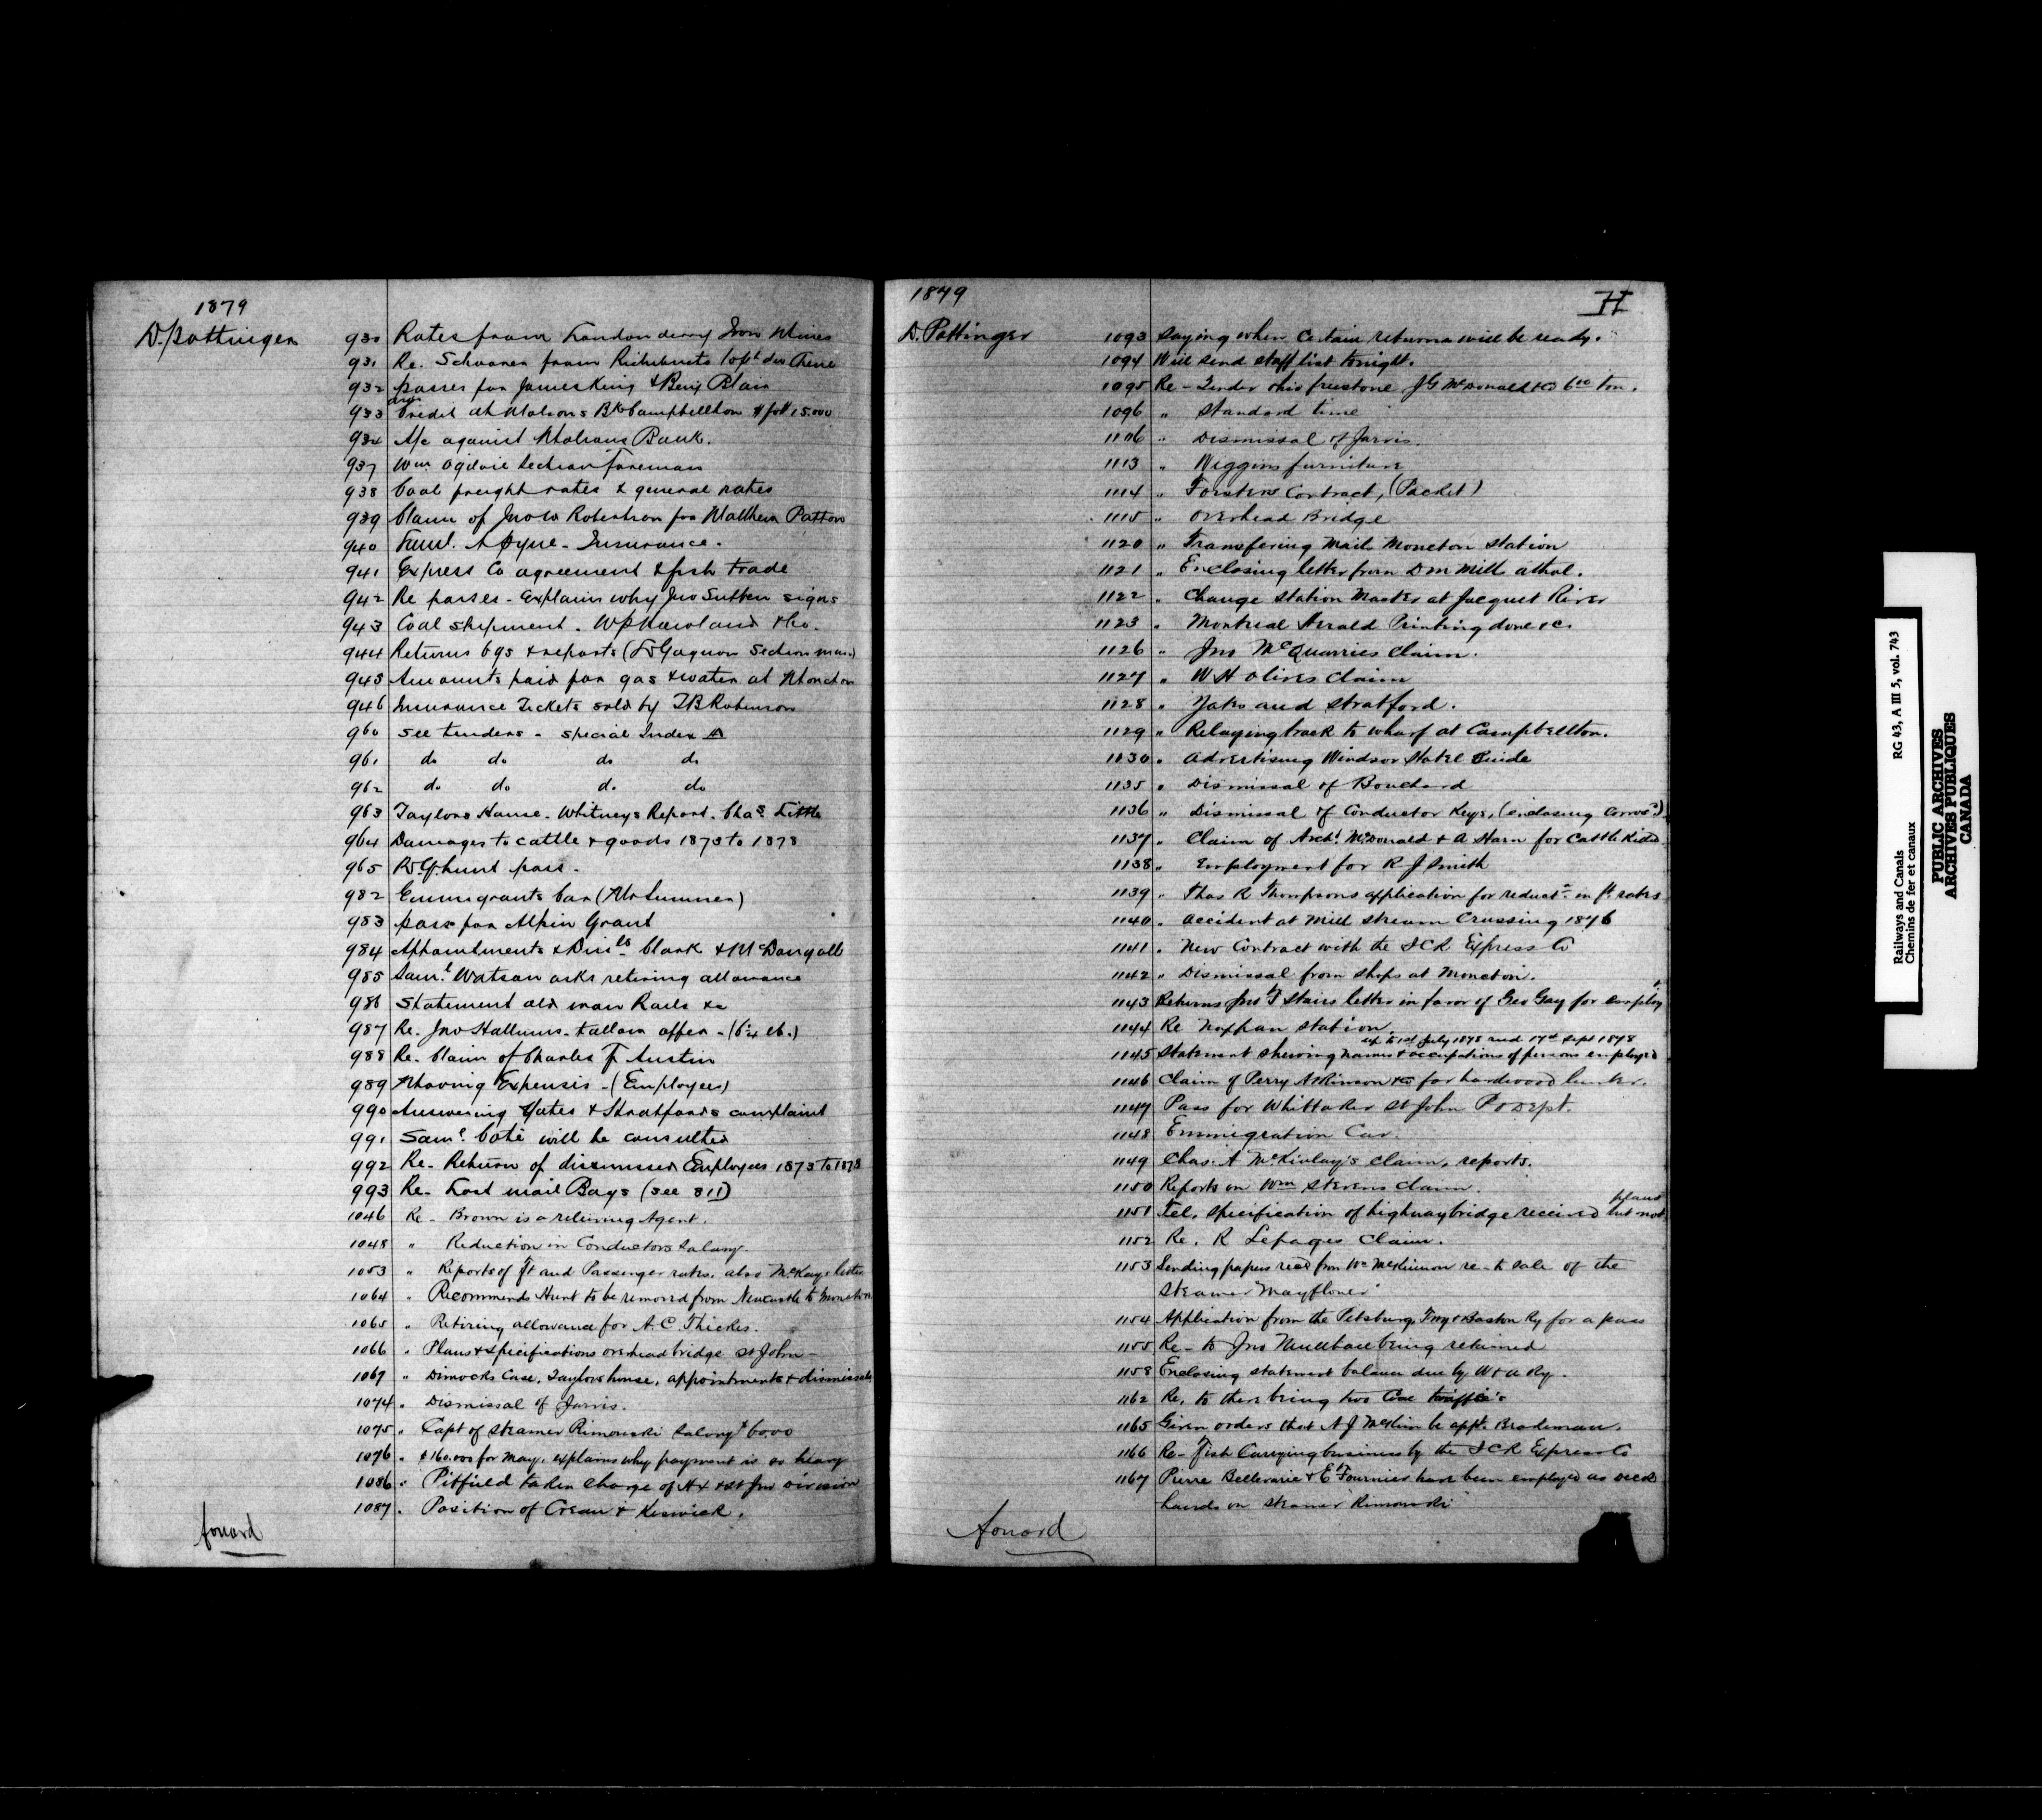 1879
D. Pottinger
930 Rates from Londonderry Iron Mines
931 Re. Schooner from Richibucto to
932 passes for James King & Benj Blair
933 Credit at Molsons Bk Campbellton $ 15.000
934 A/c against Molsons Bank.
937 Wm Ogilvie Section Foreman
938 Coal freight rates & general rates
939 Claim of Jno W Robertson for Matthew Patton
940 Saml. A Pyne - Insurance.
941 Express Co agreement & fish trade
942 Re passes - Explains why Jno Sutton signs
943 Coal shipment. W P Howland & Co.
944 Returns & reports ( Gagnon Section man)
945 Amounts paid for gas & water at Moncton
946 Insurance Tickets sold by T B Robinson
960 See tenders - special Index A
961 do do do do
962 do do do do
963 Taylors House. Whitneys Report. Chas. Little
964 Damages to cattle & goods 1873 to 1878
965 hunt pass.
982 Emmigrants Car (Mr Sumner)
983 pass for Alpin Grant
984 Appointments & Dismls Clark & McDougall
985 Saml. Watson asks retiring allowance
986 Statement old iron Rails &c
987 Re. Jno Hallums. tallow offer - (6¼ lb.)
988 Re. Claim of Charles F Austin
989 Moving Expenses - (Employees)
990 Answering Yates & Stratfords complaint
991 Saml Coté will be consulted
992 Re. Return of dismissed Employees 1873 to 1878
993 Re. Lost mail Bags (see 811)
1046 Re - Brown is a relieving Agent.
1048 " Reduction in Conductors Salary.
1053 " Reports of ft and Passenger rates. also McKays letter
1064 " Recommends Hunt to be removed from Newcastle to Moncton
1065 " Retiring allowance for A. C. Thickes.
1066 " Plans & specifications overhead bridge St John -
1067 " Dimocks Case, Taylors house, appointments & dismissals
1074 " Dismissal of Jarvis.
1075 " Capt of Steamer Rimouski Salary $60.00
1076 " $160.000 for May. explains why payment is so heavy
1086 " Pitfield taken charge of Hx & St Jno division
1087 " Position of Crean & Keswick.
forward
1879
H
D. Pottinger
1093 Saying when Certain returns will be ready.
1094 Will send staff list tonight.
1095 Re - Tender Ohio freestone J G McDonald & Co 6 00 ton.
1096 " Standard time
1106 " Dismissal of Jarvis.
1113 " Wiggins furniture
1114 " Forsters Contract, (Packet)
1115 " Overhead Bridge
1120 " Transfering Mails Moncton Station
1121 " Enclosing letter from D Mills athol.
1122 " Change Station Master at Jacquet River
1123 " Montreal Herald Printing done &c.
1126 " Jno McQuarries Claim.
1127 " W H Olives Claim
1128 " Yates and Stratford.
1129 " Relaying track to wharf at Campbellton.
1130 " Advertising Windsor Hotel Guide
1135 " Dismissal of Bouchard
1136 " Dismissal of Conductor Keys, (enclosing Corres.)
1137 " Claim of Archd. McDonald & A Starn for Cattle Killed
1138 " Employment for R J Smith
1139 " Thos R Thompsons application for reductn in ft rates
1140 " Accident at Mill Stream Crossing 1876
1141 " New Contract with the ICR Express Co
1142 " Dismissal from Shops at Moncton.
1143 Returns Jno F Stairs letter in favor of Geo Gay for employ
1144 Re Norphan Station
up to 1st July 1878 and 17th Sept 1878
1145 Statement shewing names & occupations of persons employed
1146 Claim of Perry Atkinson & Co for hardwood lumber.
1147 Pass for Whittaker St John P O Dept.
1148 Emmigration Car.
1149 Chas. A McKinlay's Claim, reports.
1150 Reports on Wm Stevens Claim.
plans
1151 Tel. specification of highway bridge received but not
1152 Re. R Lepages Claim.
1153 Sending papers recd from Wm McKinnon re - to sale of the
Steamer "Mayflower"
1154 Application from the Pitsburg, Troy & Boston Ry for a pass
1155 Re - to Jno being retained
1158 Enclosing statement balance due by W & A Ry.
1162 Re. to there being two Coal traffic's
1165 Given orders that A J McKim be appt. Brakeman.
1166 Re - Fish Carrying business by the ICR Express Co
1167 Pierre Bellevarie & E Fournier have been employed as deck
hands on Steamer "Rimouski"
forward
Railways and Canals RG 43, A III 5, vol. 743
Chemins de fer et canaux
PUBLIC ARCHIVES
ARCHIVES PUBLIQUES
CANADA